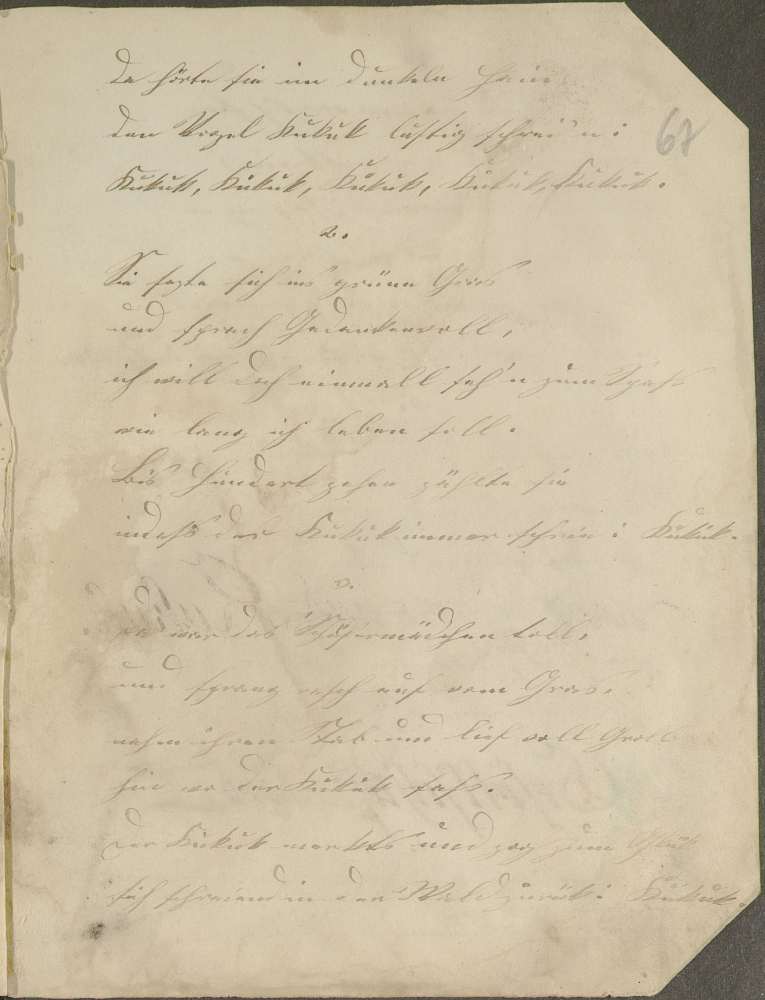 67
Da hörte sie im Dunkeln Hain
den Vogel Kukuk lustig schrei'n:
Kukuk, Kukuk, Kukuk, Kukuk, Kukuk.
2.
Sie sezte sich ins grüne Gras
und sprach Gedankenvoll,
ich will doch einmall seh'n zum Spaß
wie lang ich leben soll.
Bis hundert zehen zählte sie
indeß der Kukuk immer schrie: Kukuk.
3.
Da war das Schäfermädchen toll.
und sprang rasch auf vom Gras.
nahm ihren Stab und lief voll Groll
hin wo der Kukuk saß.
Der Kukuk merkts und zog zum Glük
sich schreiend in den Wald zurük: Kukuk.